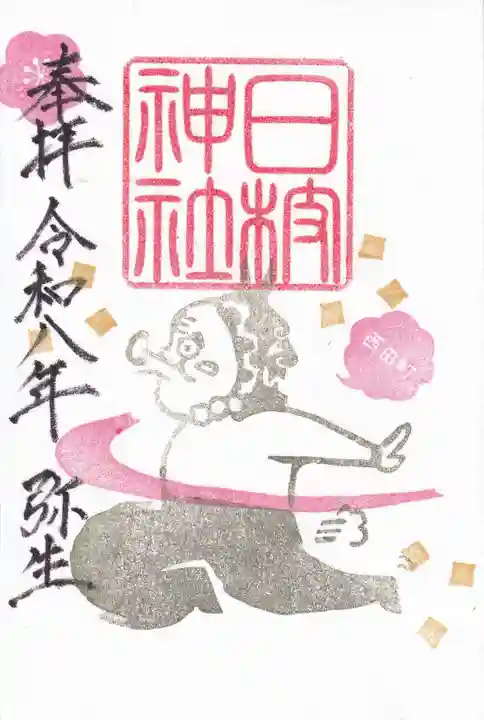 日枝
神社
奉拝 令和八年 弥生
岡田町